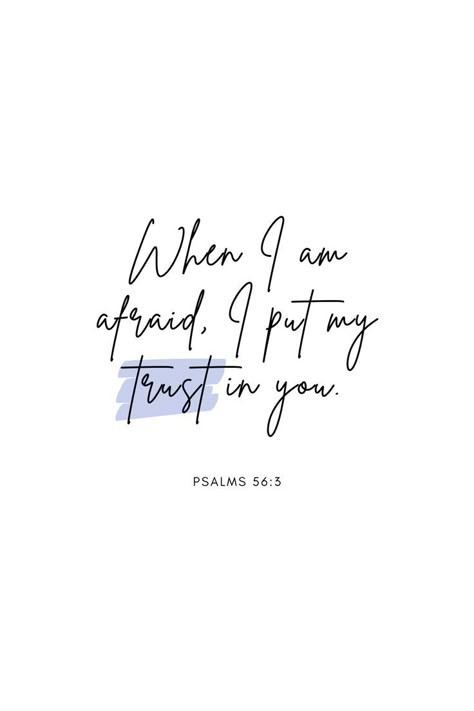 When I am
afraid, I put my
trust in you.
PSALMS 56:3